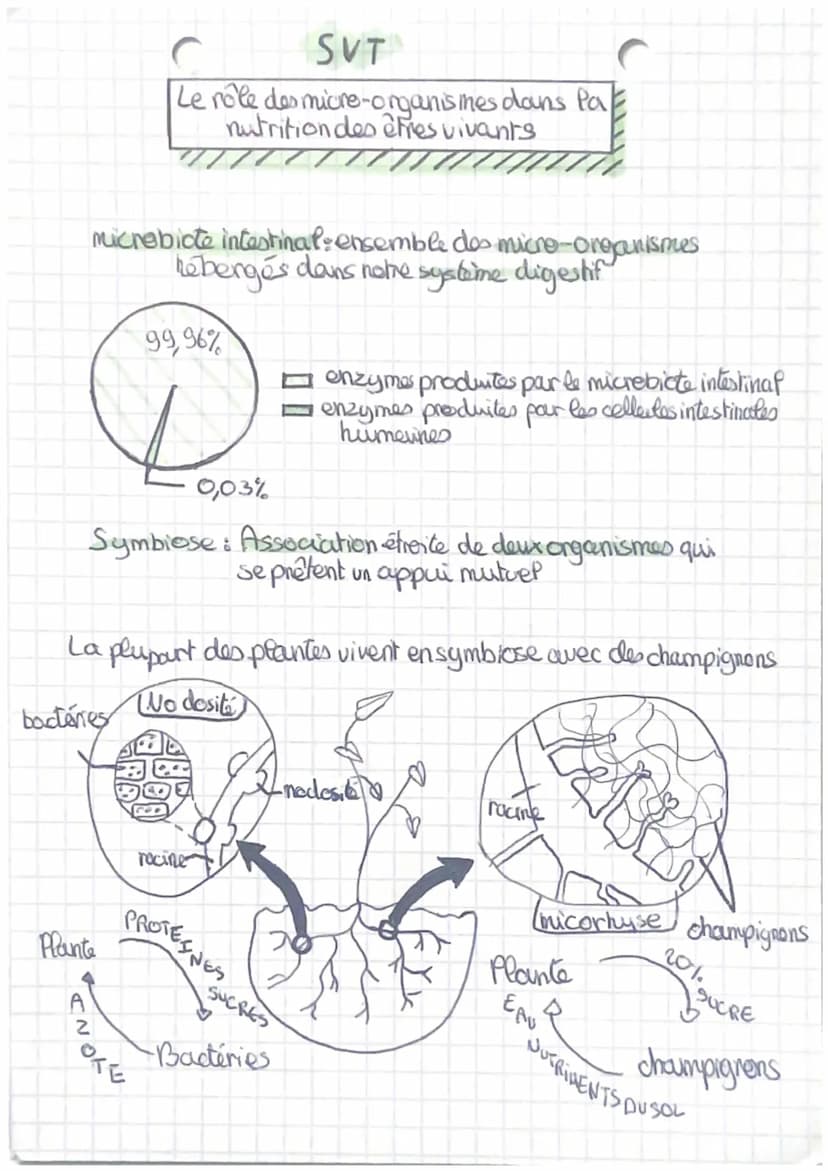 SVT
Le rôle des micro-organismes dans la
nutrition des êtres vivants
microbiote intestinal : ensemble des micro-organismes
hébergés dans notre système digestif
99,96%
enzymes produites par le microbiote intestinal
enzymes produites par les cellules intestinales
humaines
0,03%
Symbiose : Association étroite de deux organismes qui
se prêtent un appui mutuel
La plupart des plantes vivent en symbiose avec des champignons
Nodosité
bactéries
nodosité
racine
racine
micorhyse
champignons
Plante
PROTEINES
SUCRES
AZOTE
Bactéries
Plante
20%
SUCRE
EAU
NUTRIMENTS DU SOL
champignons